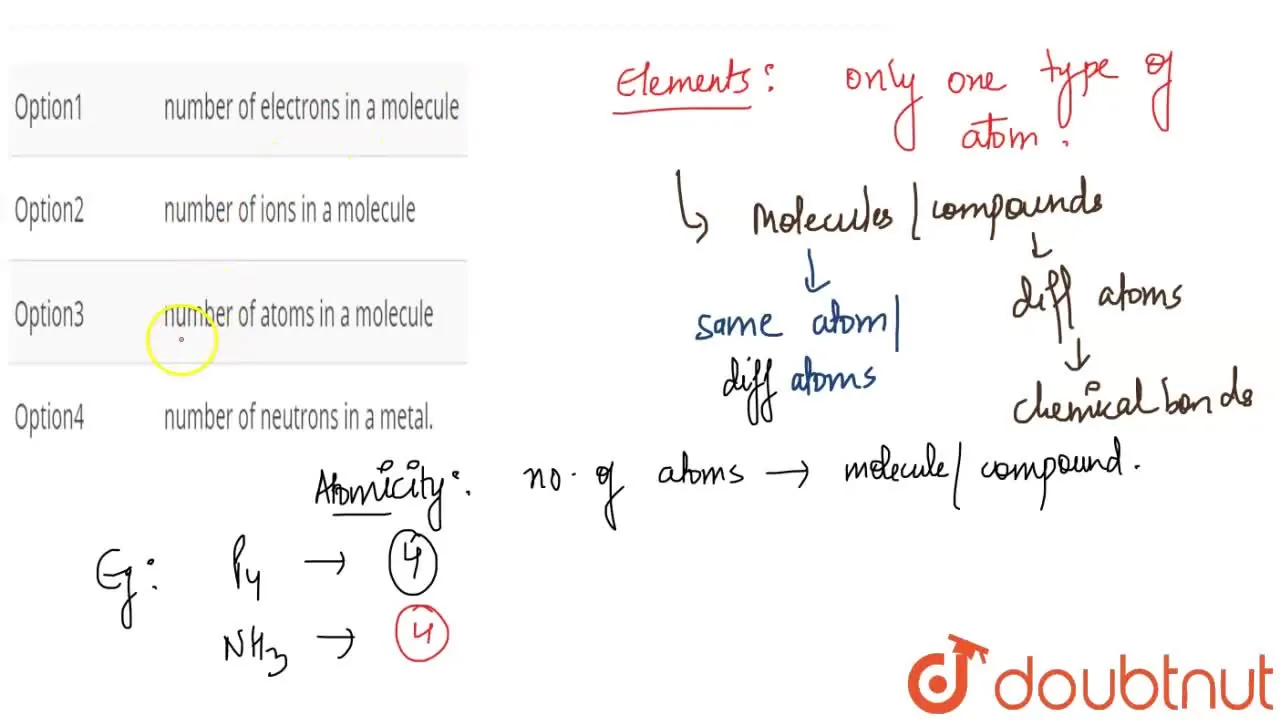 Option1 number of electrons in a molecule
Option2 number of ions in a molecule
Option3 number of atoms in a molecule
Option4 number of neutrons in a metal.
Elements: only one type of
atom.
Molecules / compounds
same atom /
diff atoms
diff atoms
chemical bonds
Atomicity: no. of atoms → molecule / compound.
Eg: P4 → 4
NH3 → 4
doubtnut